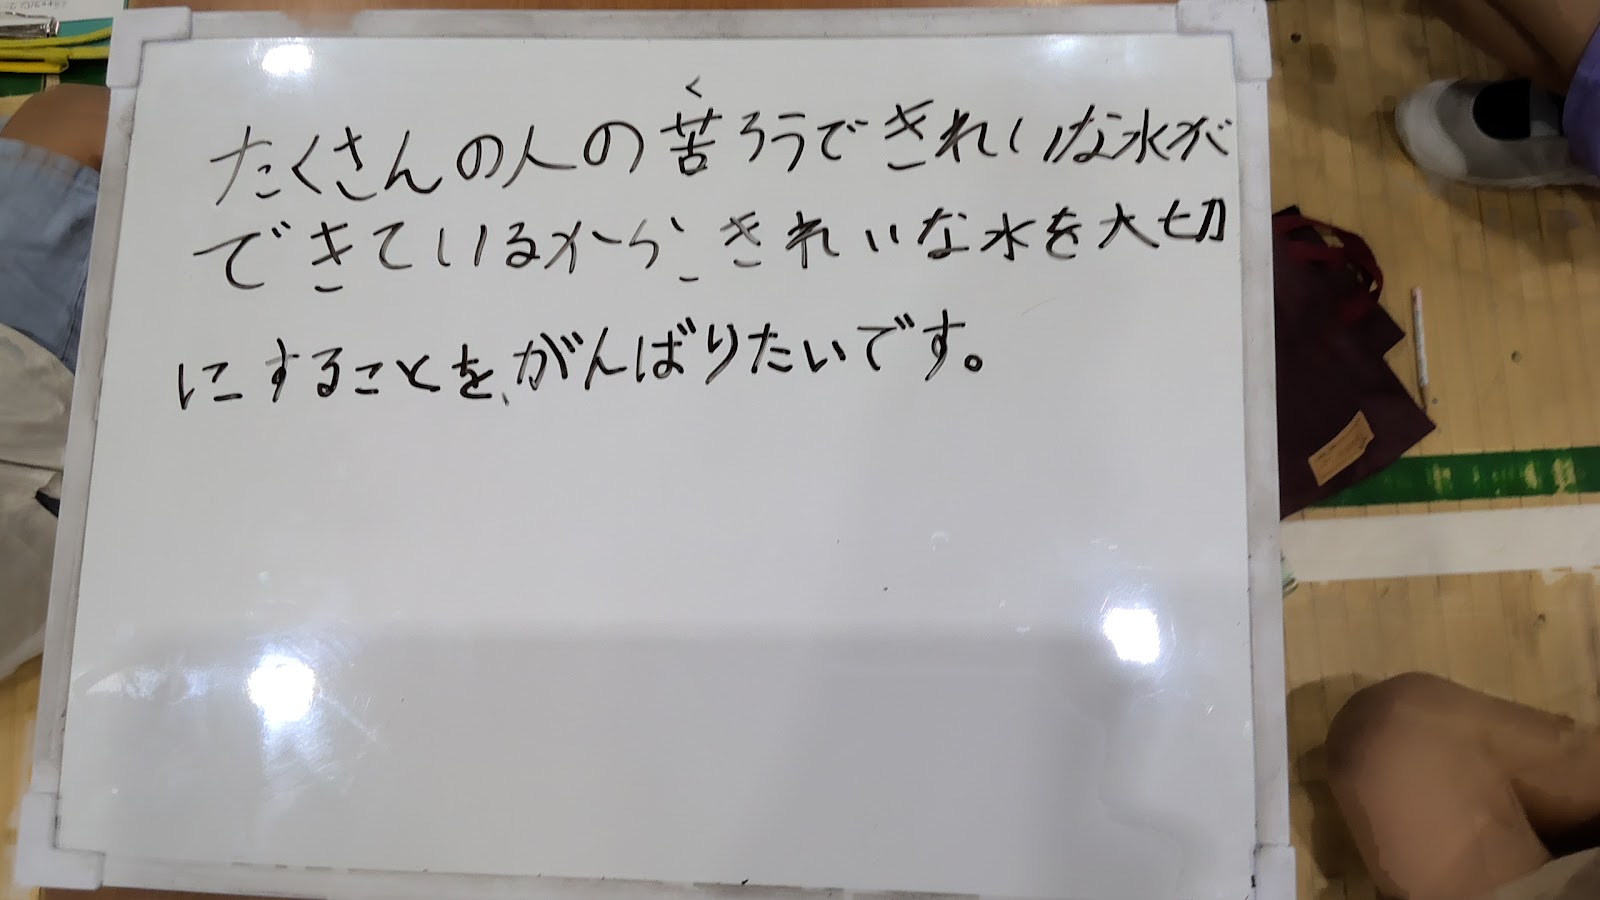 たくさんの人の苦ろうできれいな水が
できているから、きれいな水を大切
にすることを、がんばりたいです。